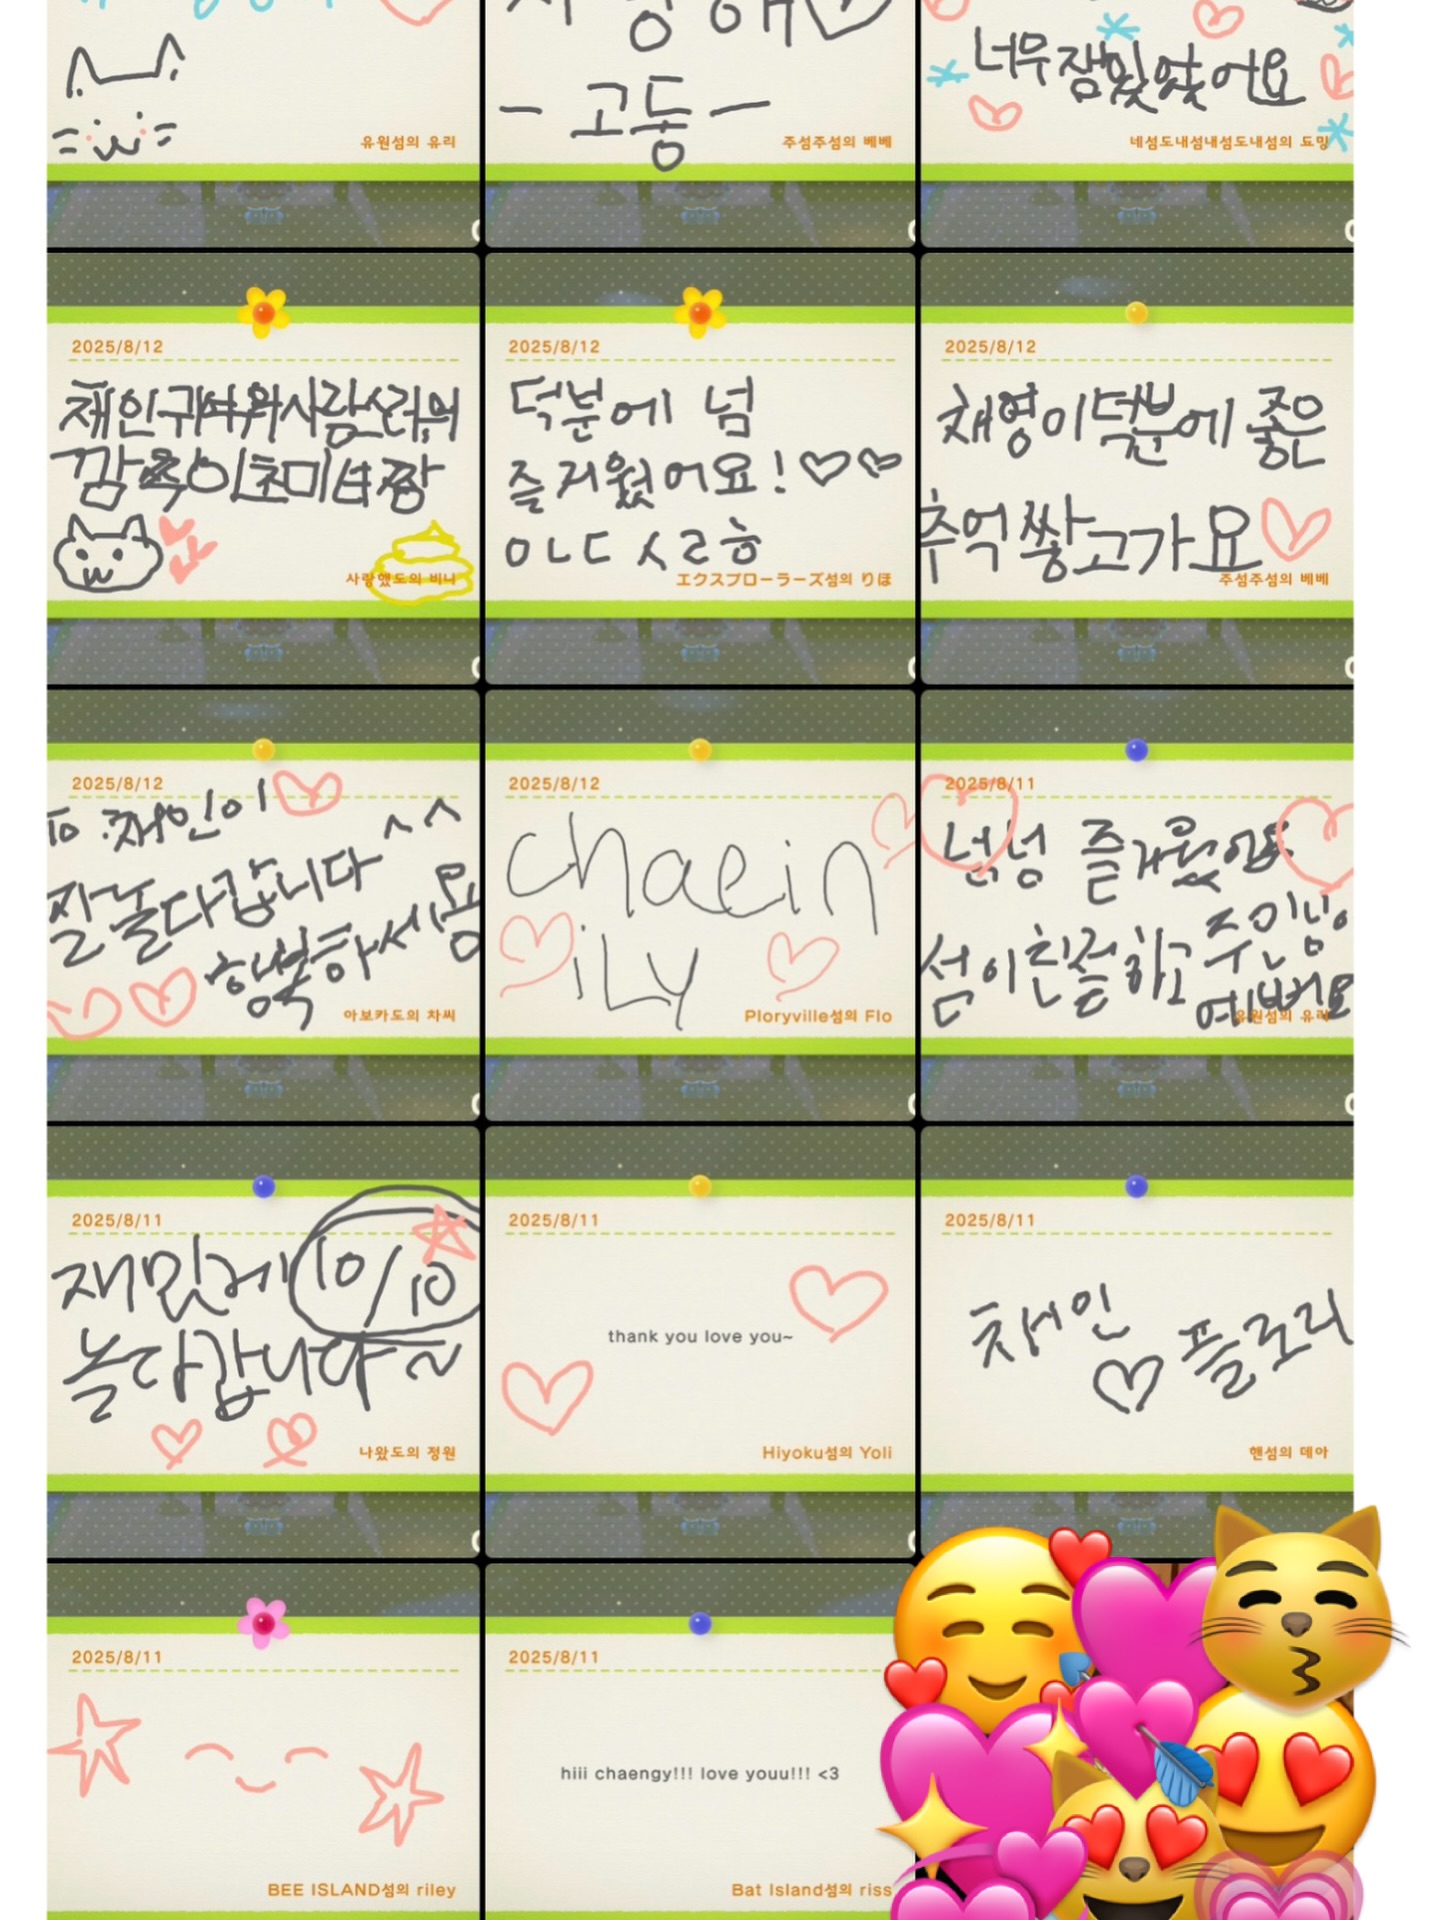 고동
유원섬의 유리
주섬주섬의 베베
너무 잼밌었어요
네섬도내섬내섬도내섬의 됴밍
2025/8/12
채인 귀여워 사랑스러워
깜찍이 초미녀 짱
사랑했도의 비나
2025/8/12
덕분에 넘
즐거웠어요!♡♡
ㅇㄴㄷ ㅅㄹㅎ
エクスプローラーズ섬의 りほ
2025/8/12
채영이 덕분에 좋은
추억 쌓고가요♡
주섬주섬의 베베
2025/8/12
To. 채인이
잘 놀다갑니다 ^^
행복하세용
아보카도의 차씨
2025/8/12
chaein
iLy
Ploryville섬의 Flo
2025/8/11
넘넘 즐거웠어요
섬이 친절하고 주인님이
예뻐요
유원섬의 유리
2025/8/11
재밌게 10/10
놀다갑니다~
나왔도의 정원
2025/8/11
thank you love you~
Hiyoku섬의 Yoli
2025/8/11
채인
♡ 플로리
핸섬의 데아
2025/8/11
BEE ISLAND섬의 riley
2025/8/11
hiii chaengy!!! love youu!!! <3
Bat Island섬의 riss